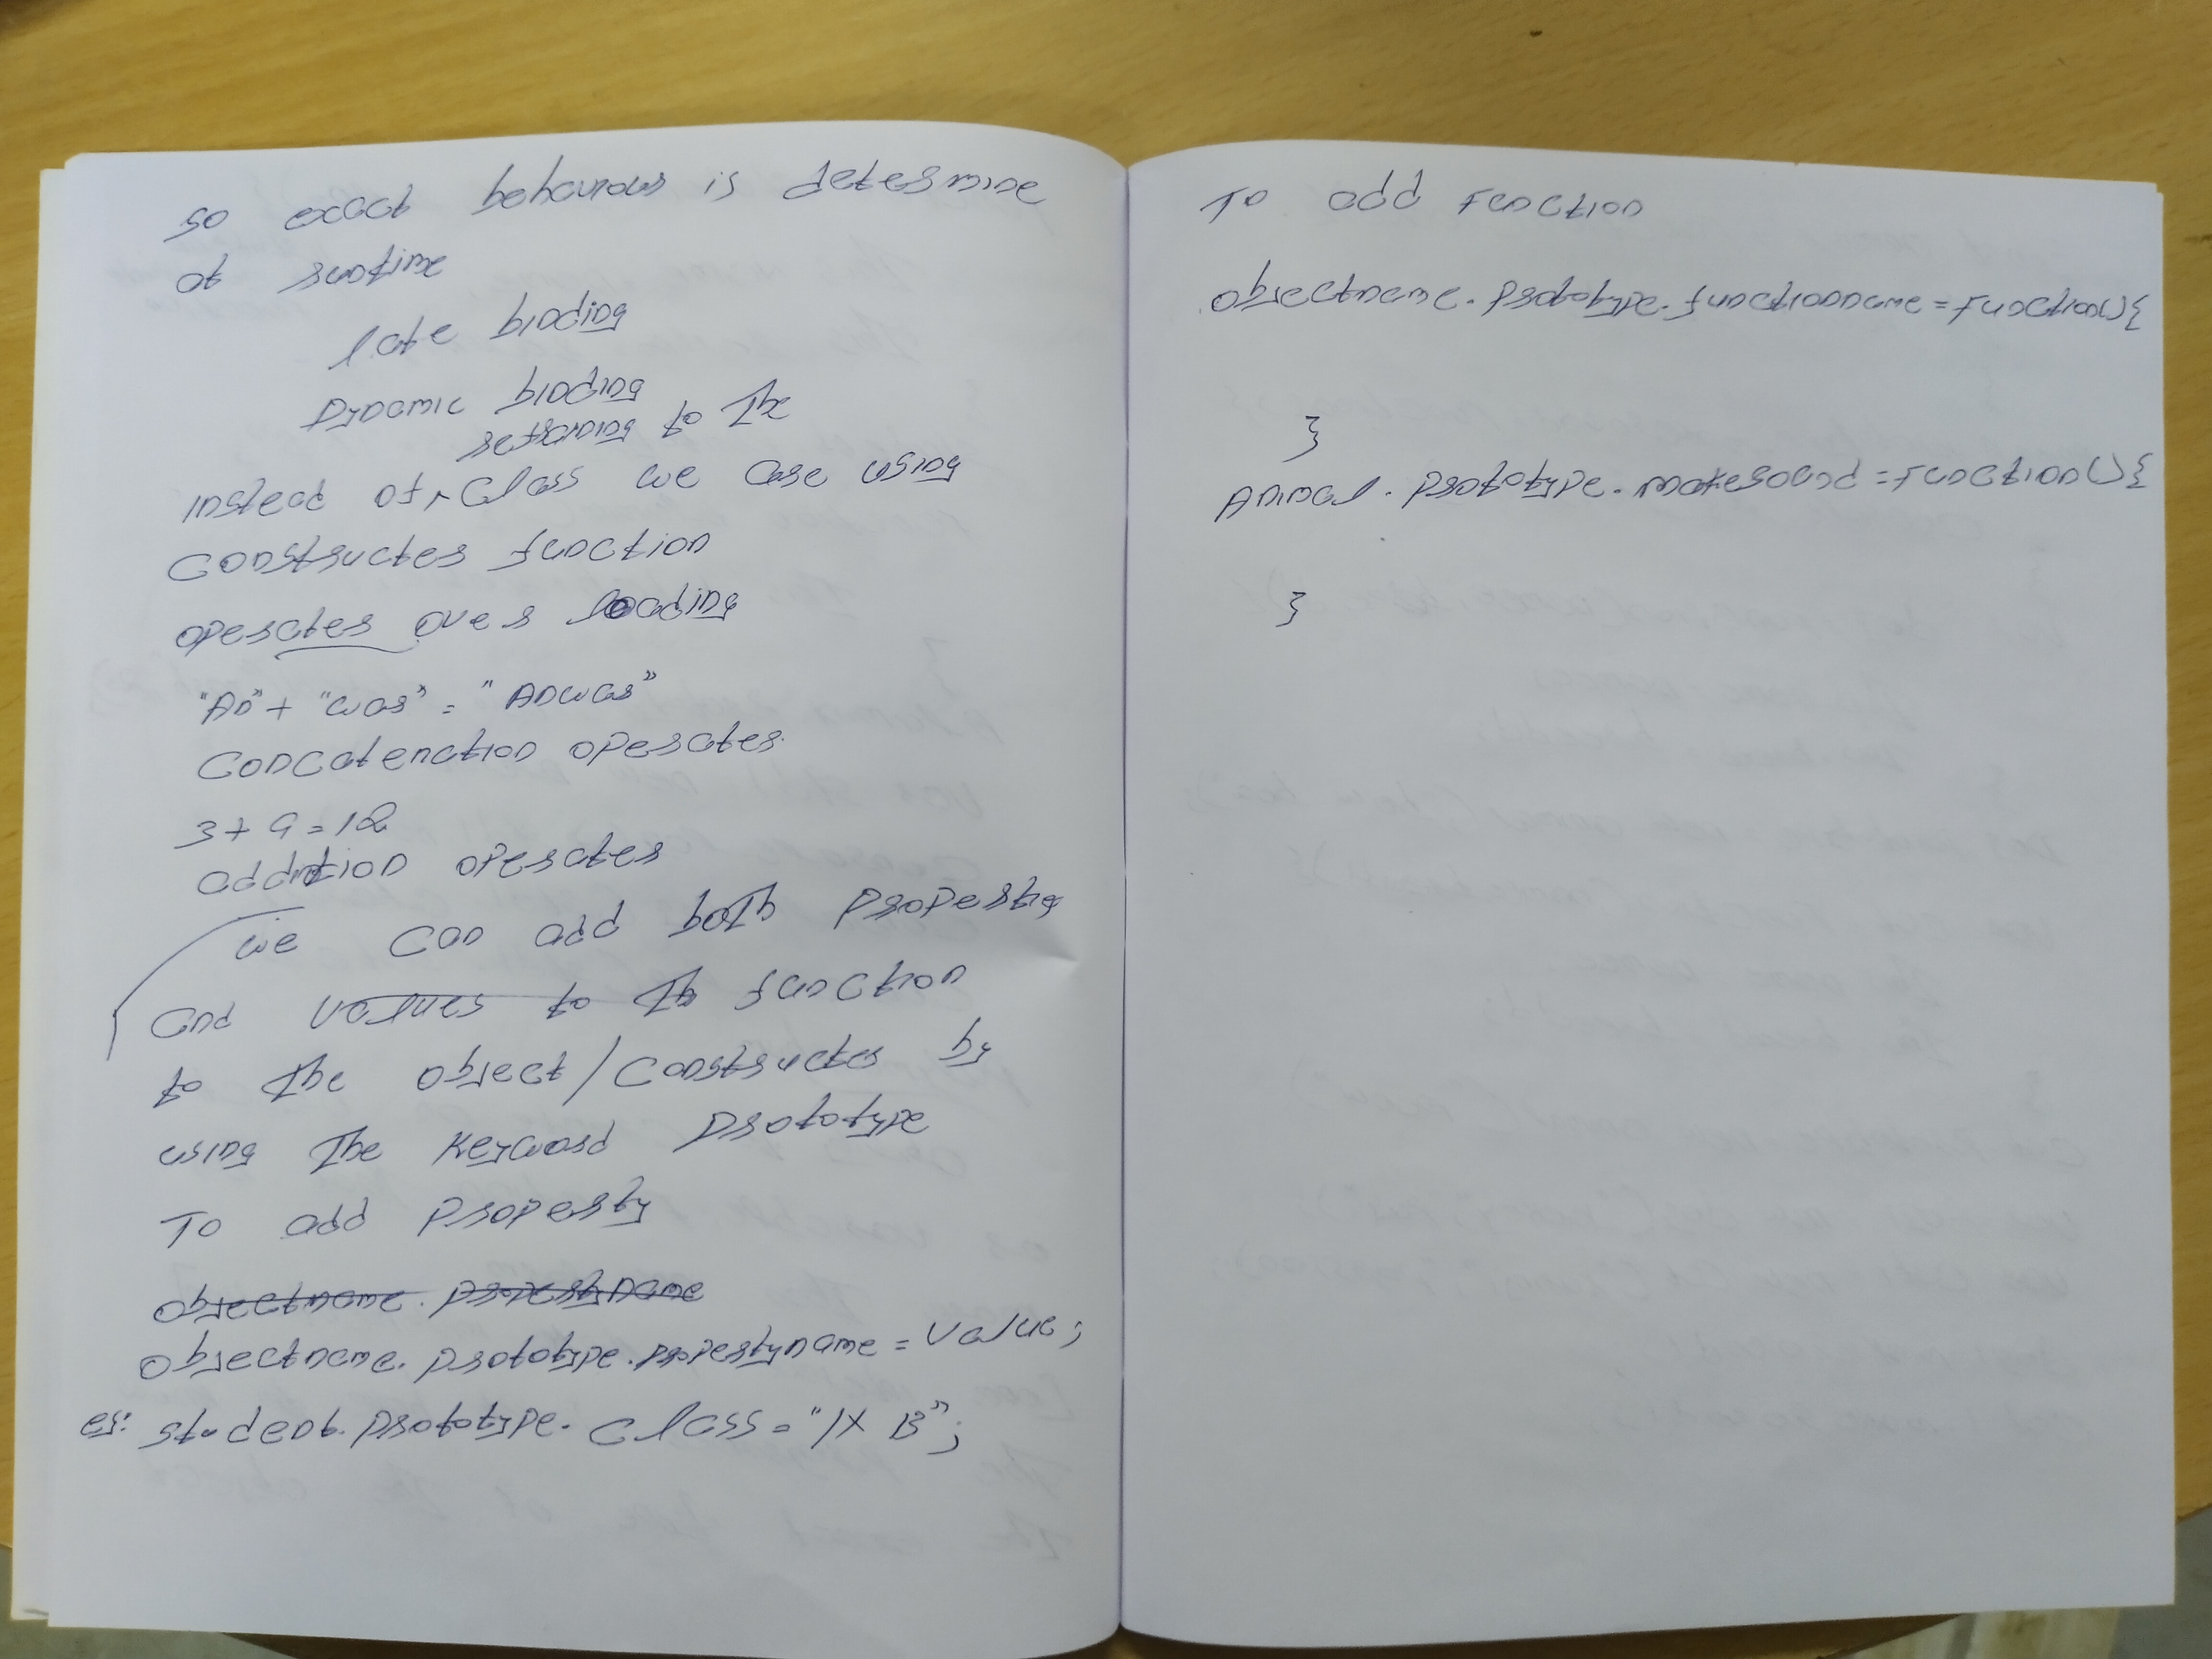 so exact behaviour is determine
at runtime
late binding
Dynamic binding
referring to the
instead of ^ class we are using
constructer function
operater over loading
"An" + "war" = "Anwar"
concatenation operater
3 + 9 = 12
addition operater
we can add both property
and values to th function
to the object / constructer by
using the keyword prototype
To add property
objectname. propertyname
objectname. prototype. propertyname = value;
eg: student. prototype. class = "IX B";
To add function
objectname. prototype. functionname = function(){
}
Animal. prototype. makesound = function(){
}